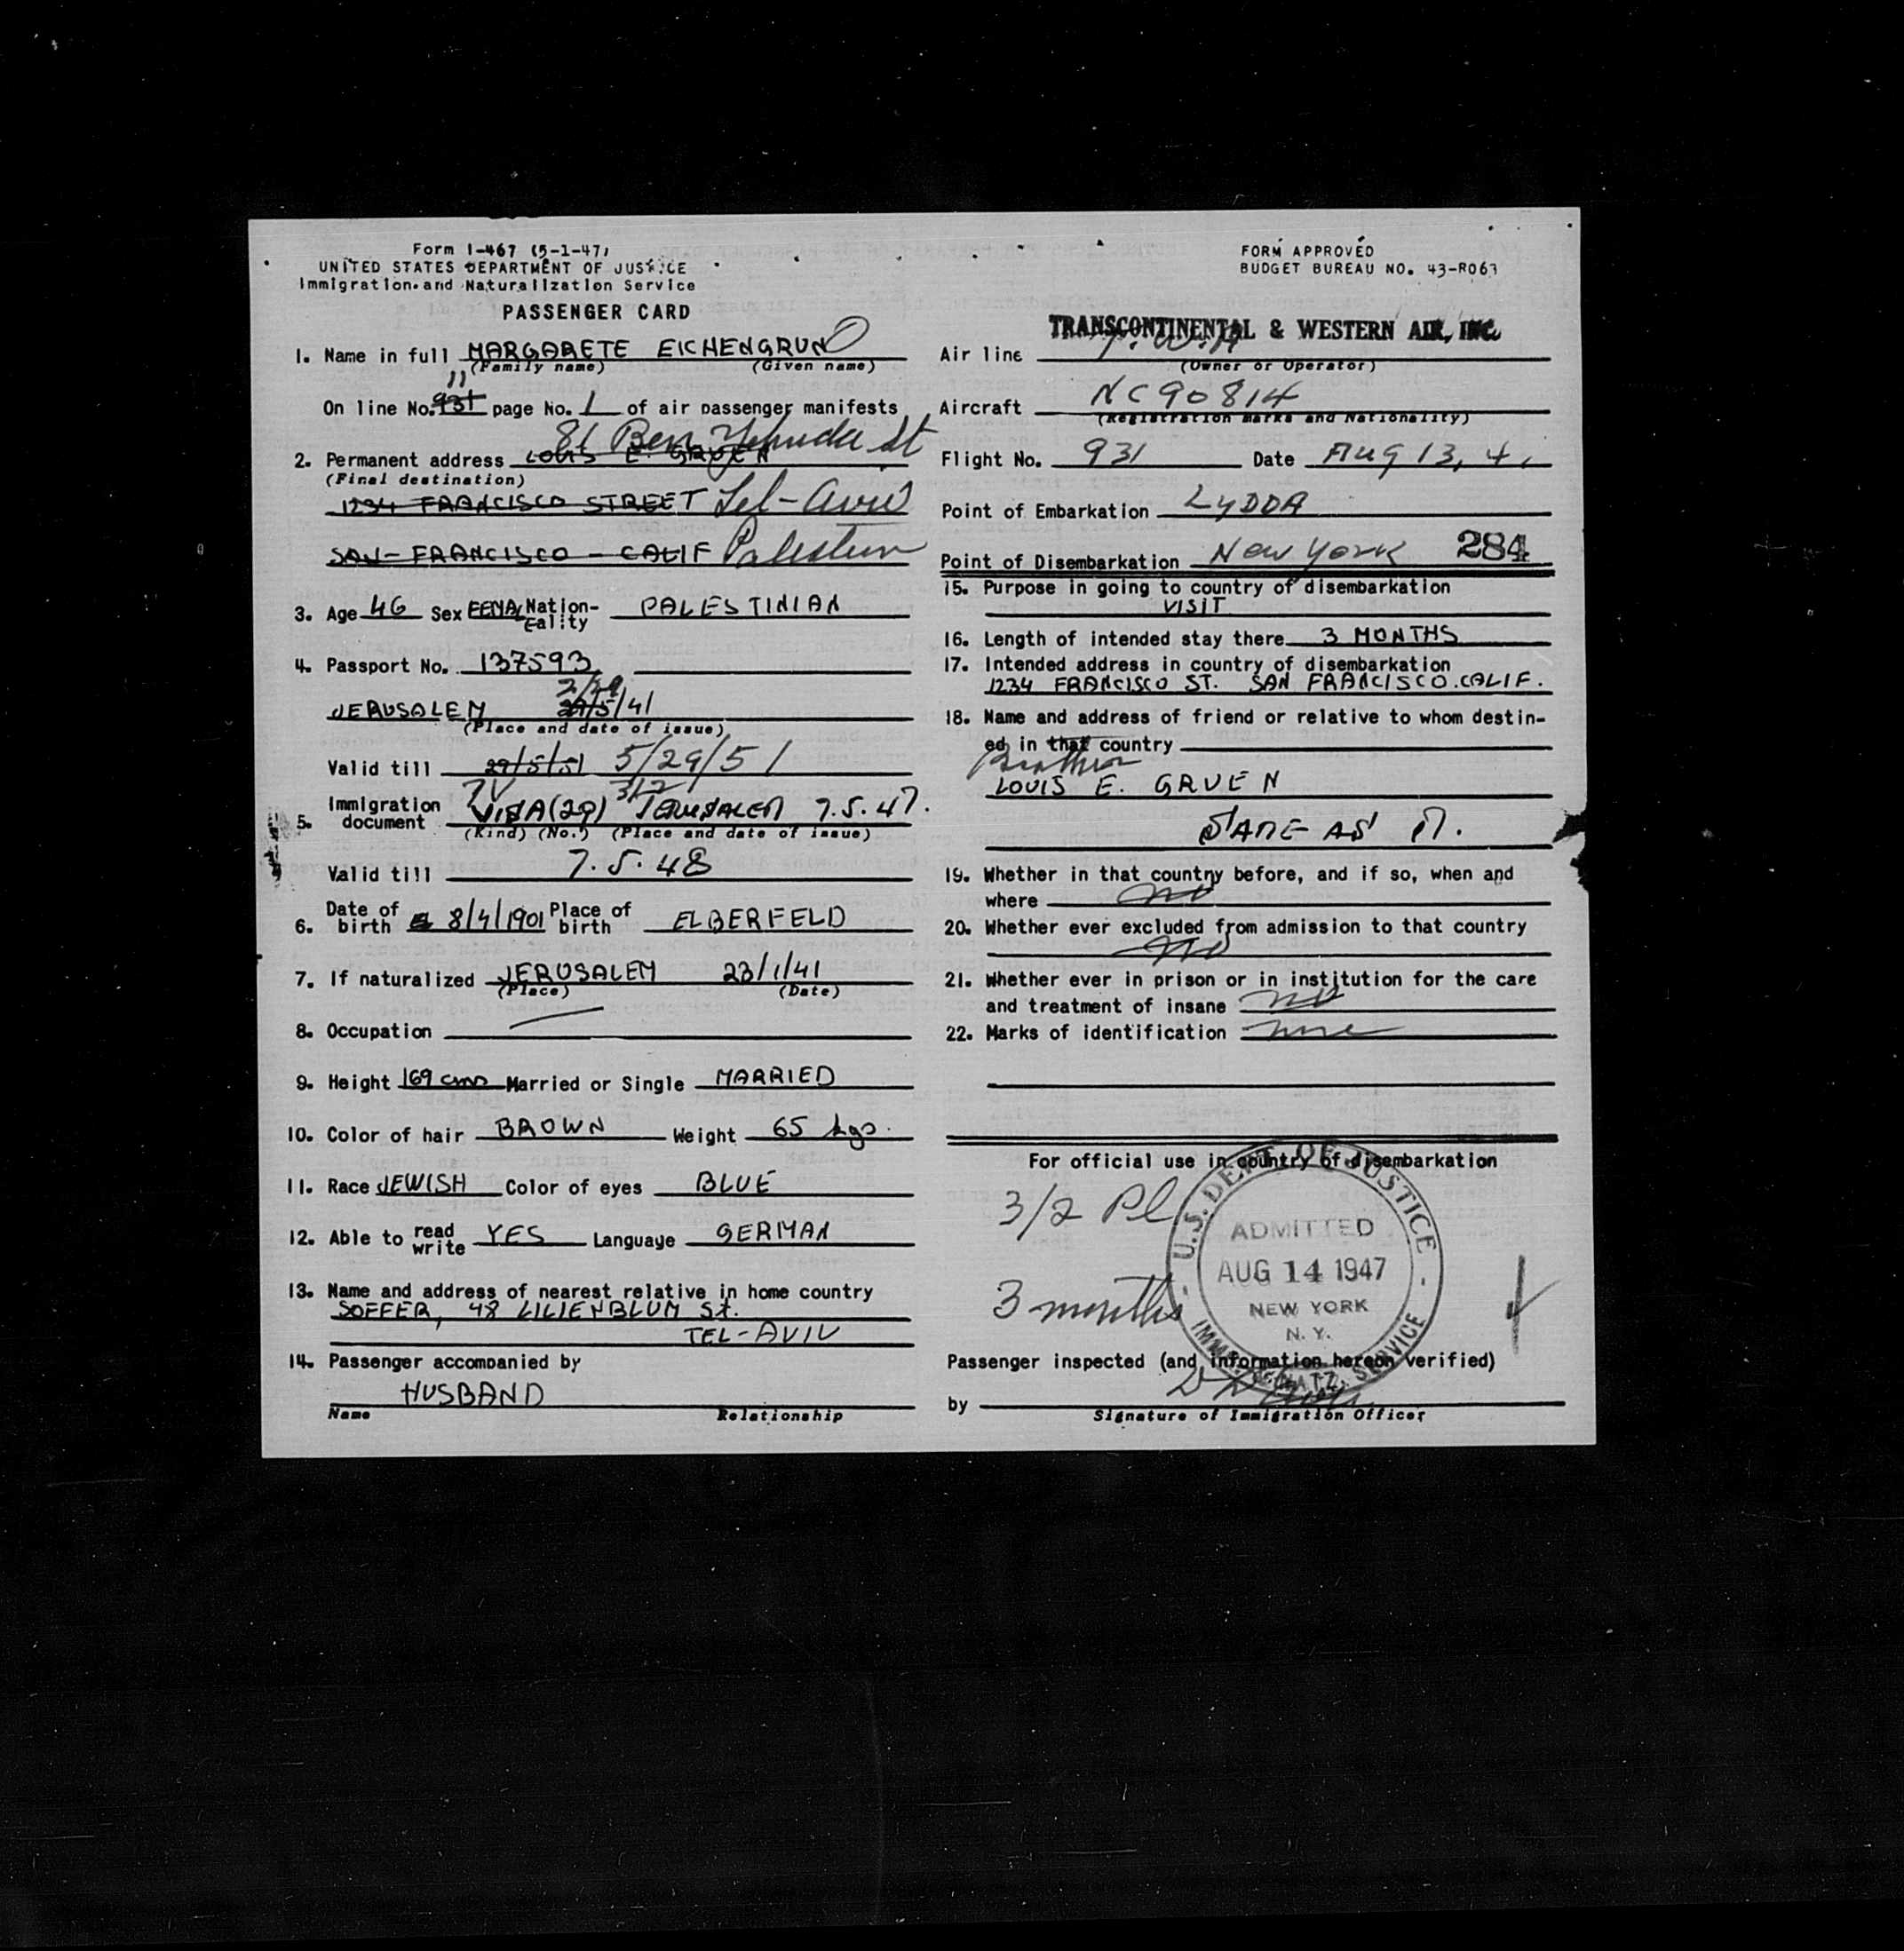 Form I-467 (5-1-47)
UNITED STATES DEPARTMENT OF JUSTICE
Immigration and Naturalization Service
PASSENGER CARD
1. Name in full MARGARETE EICHENGRUN
(Family name) (Given name)
11
On line No. 931 page No. 1 of air passenger manifests
81 Ben Yehuda St
2. Permanent address LOUIS E. GRUEN
(Final destination)
1234 FRANCISCO STREET Tel-Aviv
SAN-FRANCISCO - CALIF
3. Age 46 Sex FEMALE Nationality PALESTINIAN
4. Passport No. 137593
JERUSALEM 29/5/41
(Place and date of issue)
Valid till 29/5/51 5/29/51
5. Immigration document VISA (29) JERUSALEM 7.5.47.
(Kind) (No.) (Place and date of issue)
Valid till 7.5.48
6. Date of birth 8/4/1901 Place of birth ELBERFELD
7. If naturalized JERUSALEM 23/1/41
(Place) (Date)
8. Occupation
9. Height 169 cms Married or Single MARRIED
10. Color of hair BROWN Weight 65 kgs.
11. Race JEWISH Color of eyes BLUE
12. Able to read write YES Language GERMAN
13. Name and address of nearest relative in home country
SOFFER, 48 LILIENBLUM St.
TEL-AVIV
14. Passenger accompanied by
HUSBAND
Name Relationship
FORM APPROVED
BUDGET BUREAU NO. 43-R063
TRANSCONTINENTAL & WESTERN AIR, INC.
Air line T.W.A
(Owner or Operator)
Aircraft NC90814
(Registration marks and Nationality)
Flight No. 931 Date Aug 13, 4
Point of Embarkation LYDDA
Point of Disembarkation New York 284
15. Purpose in going to country of disembarkation
VISIT
16. Length of intended stay there 3 MONTHS
17. Intended address in country of disembarkation
1234 FRANCISCO ST. SAN FRANCISCO. CALIF.
18. Name and address of friend or relative to whom destin-
ed in that country
Brother
LOUIS E. GRUEN
SAME AS 17.
19. Whether in that country before, and if so, when and
where no
20. Whether ever excluded from admission to that country
no
21. Whether ever in prison or in institution for the care
and treatment of insane no
22. Marks of identification none
For official use in country of disembarkation
3/2 Pl
3 months
U.S. DEPT. OF JUSTICE
ADMITTED
AUG 14 1947
NEW YORK
N. Y.
IMMIG. & NATZ. SERVICE
Passenger inspected (and information hereon verified)
by
Signature of Immigration Officer